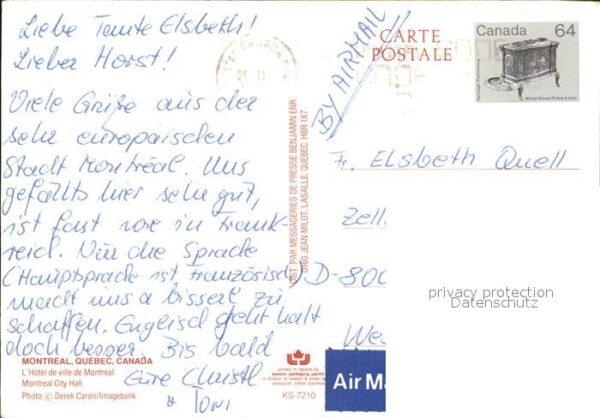 Liebe Tante Elsbeth!
Lieber Horst!
Viele Grüße aus der
sehr europäischen
Stadt Montréal. Uns
gefällts hier sehr gut,
ist fast wie in Frank-
reich. Nur die Sprache
(Hauptsprache ist französisch)
macht uns a bisserl zu
schaffen. Englisch geht halt
doch besser. Bis bald
Eure Christl
& Toni
MONTREAL, QUEBEC, CANADA
L'Hôtel de ville de Montréal
Montreal City Hall
Photo © Derek Caron/Imagebank
KS-7210
DIST PAR MESSAGERIES DE PRESSE BENJAMIN ENR.
JEAN MILOT, LASALLE, QUEBEC H8R 1X7
CARTE
POSTALE
BY AIRMAIL
Canada 64
Fr. Elsbeth Quell
Zell
D-800
We
privacy protection
Datenschutz
Air Ma